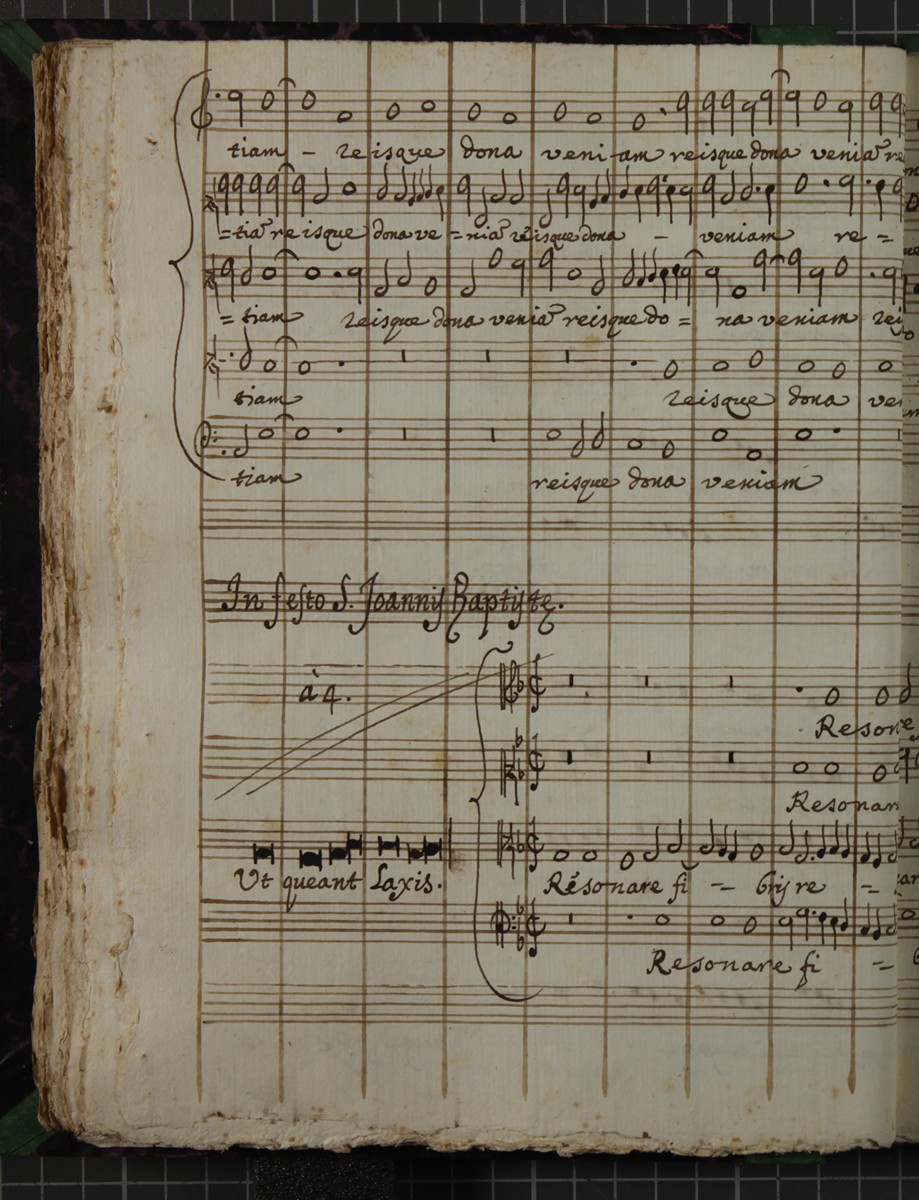 tiam - reisque dona veniam reisque dona veniã re
=tiã reisque dona ve =niã reisque dona - veniam re =
=tiam reisque dona veniã reisque do = na veniam rei
tiam reisque dona ve
tiam reisque dona veniam
In festo S. Joannis Baptiste.
à 4.
Reson
Resonar
Vt queant Laxis. Resonare fi -- brijs re -
Resonare fi =